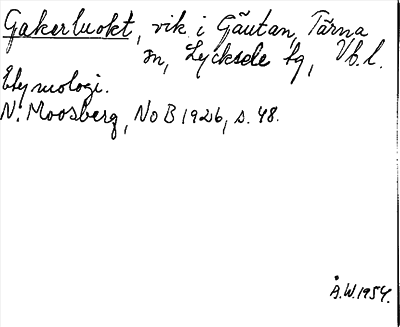 Gakerluokt, vik i Gäutan, Tärna
sn, Lycksele lg, Vb. l.
Etymologi.
N. Moosberg, NoB 1926, s. 48.
Å.W. 1954.